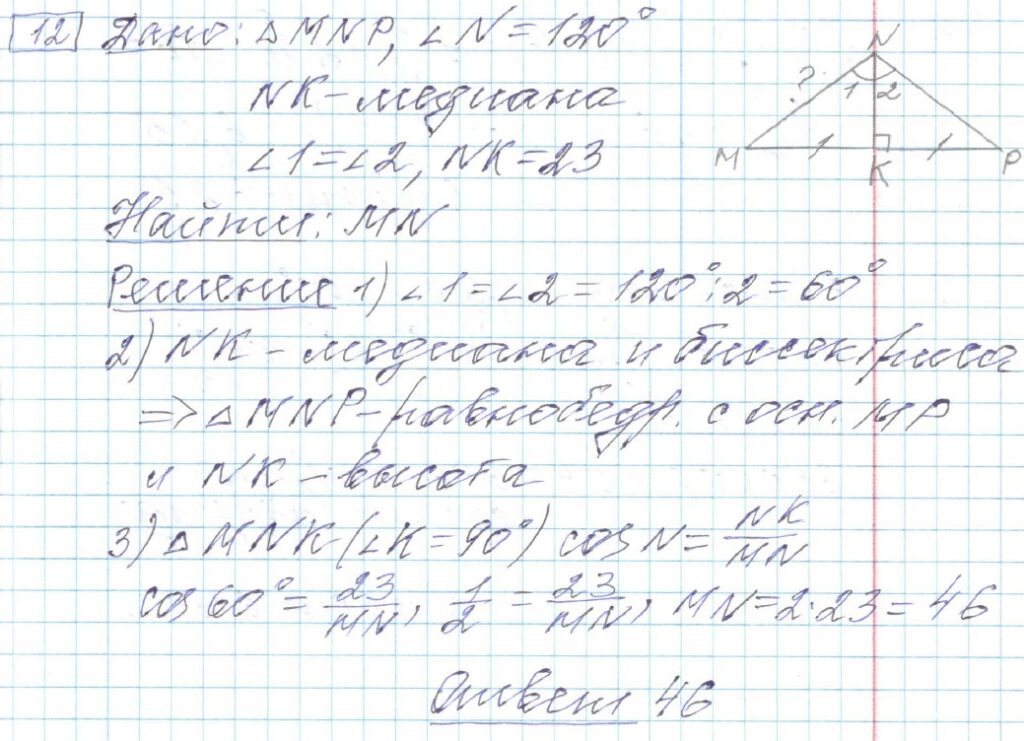 12 Дано: △MNP, ∠N=120°
NK-медиана
∠1=∠2, NK=23
Найти: MN
Решение 1) ∠1=∠2=120°:2=60°
2) NK - медиана и биссектриса
=> △MNP-равнобедр. с осн. MP
и NK-высота
3) △MNK (∠K=90°) cosN= NK/MN
cos60°= 23/MN, 1/2 = 23/MN, MN=2·23=46
Ответ 46
N
? 1 2
M K P